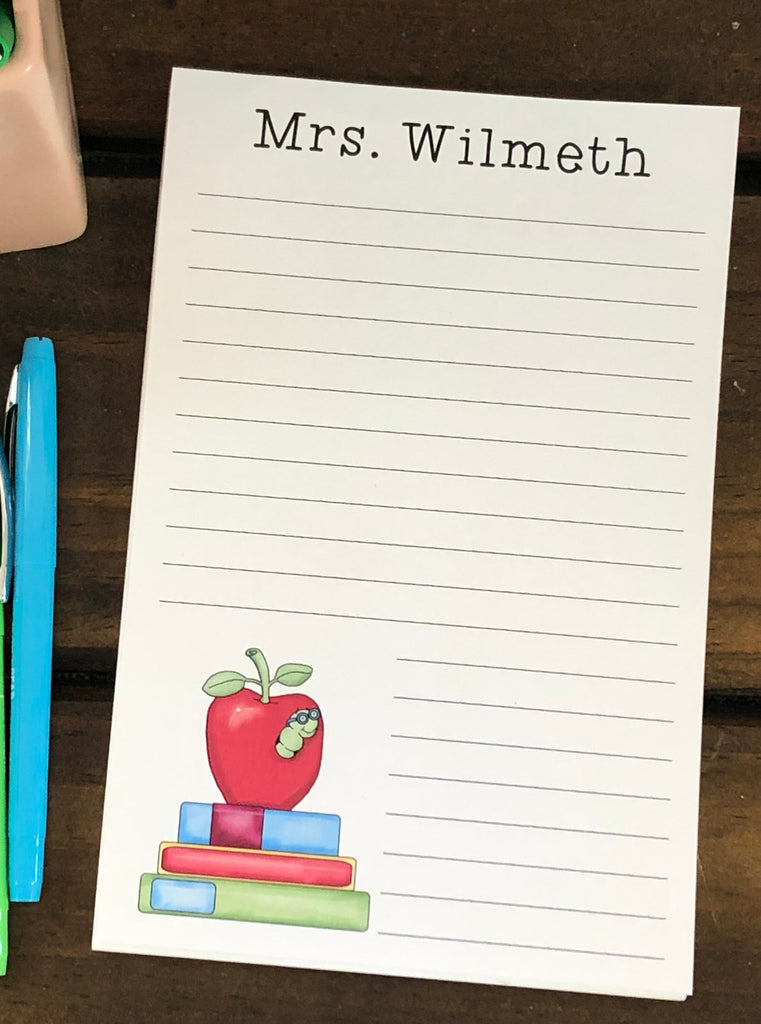 Mrs. Wilmeth